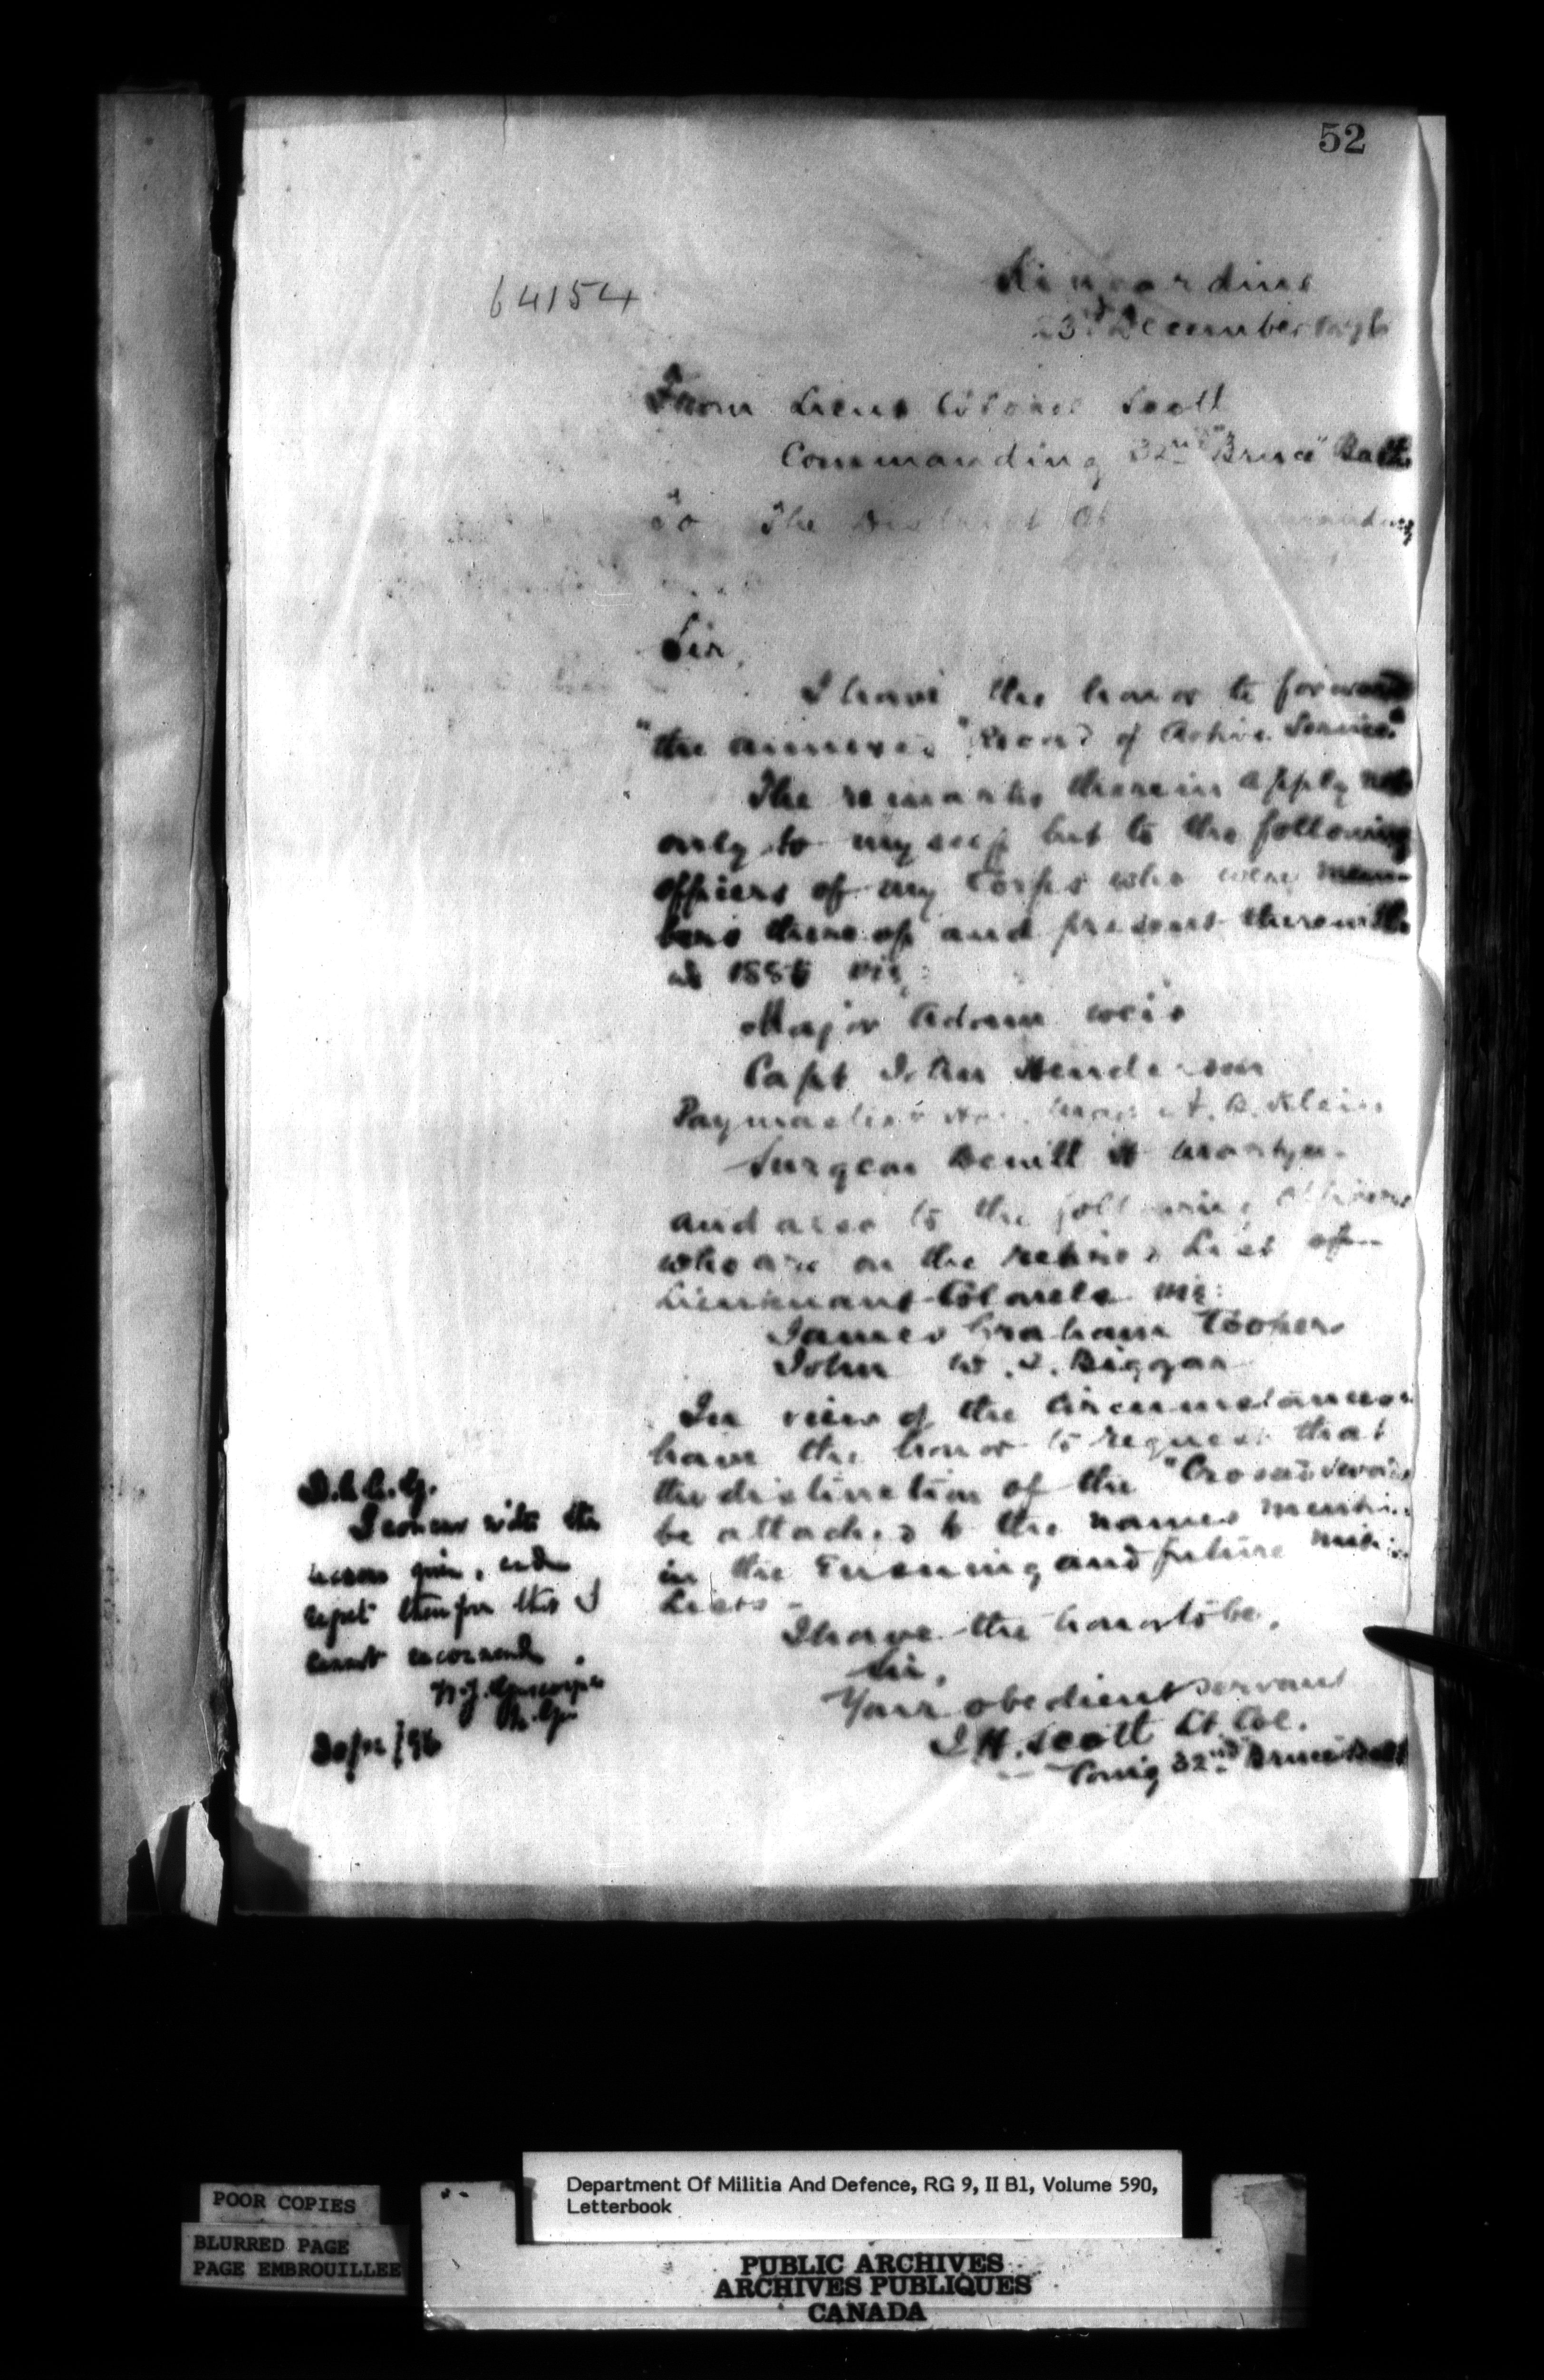 52
64154
Kincardine
23rd December
From Lieut Colonel Scott
Commanding 32nd "Bruce" Battn
To The District
Sir,
I have the honor to forward
the annexed "Record of Active Service"
The remarks therein apply not
only to myself but to the following
officers of my Corps who were mem-
bers thereof and present therewith
in 1885 viz:
Major Adam Weir
Capt John Henderson
Paymaster & Hon. Major A. B. Klein
Surgeon Dewitt H Martyn
and also to the following officers
who are on the retired List of
Lieutenant Colonels viz:
James Graham Cooper
John W. S. Biggar
In view of the circumstances
have the honor to request that
the distinction of the "Crossed Swords
be attached to the names
in the Ensuing and future
Lists -
I have the honor to be,
Sir,
Your obedient servant
J H. Scott Lt Col.
Comg 32nd Bruce Batt
D.A.A.G.
I concur with the
reasons given, and
regret therefore that I
cannot recommend.
30/12/96
Department Of Militia And Defence, RG 9, II B1, Volume 590,
Letterbook
POOR COPIES
BLURRED PAGE
PAGE EMBROUILLEE
PUBLIC ARCHIVES
ARCHIVES PUBLIQUES
CANADA